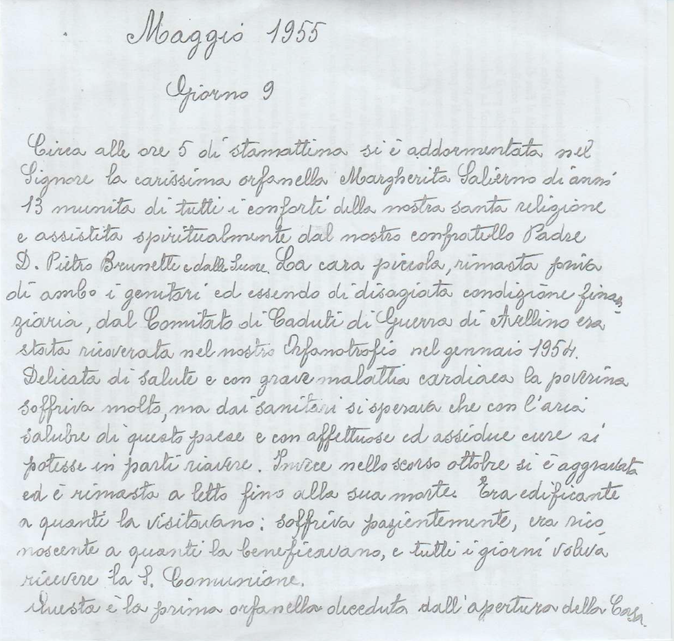 Maggio 1955
Giorno 9
Circa alle ore 5 di stamattina si è addormentata nel
Signore la carissima orfanella Margherita Salierno di anni
13 munita di tutti i conforti della nostra santa religione
e assistita spiritualmente dal nostro confratello Padre
D. Pietro Brunetti e dalle Suore. La cara piccola, rimasta priva
di ambo i genitori ed essendo di disagiata condizione finan
ziaria, dal Comitato di Caduti di Guerra di Avellino era
stata ricoverata nel nostro Orfanotrofio nel gennaio 1954.
Delicata di salute e con grave malattia cardiaca la poverina
soffriva molto, ma dai sanitari si sperava che con l'aria
salubre di questo paese e con affettuose ed assidue cure si
potesse in parti riavere. Invece nello scorso ottobre si è aggravata
ed è rimasta a letto fino alla sua morte. Era edificante
a quanti la visitavano: soffriva pazientemente, era rico
noscente a quanti la beneficavano, e tutti i giorni voleva
ricevere la S. Comunione.
Questa è la prima orfanella deceduta dall'apertura della Casa.